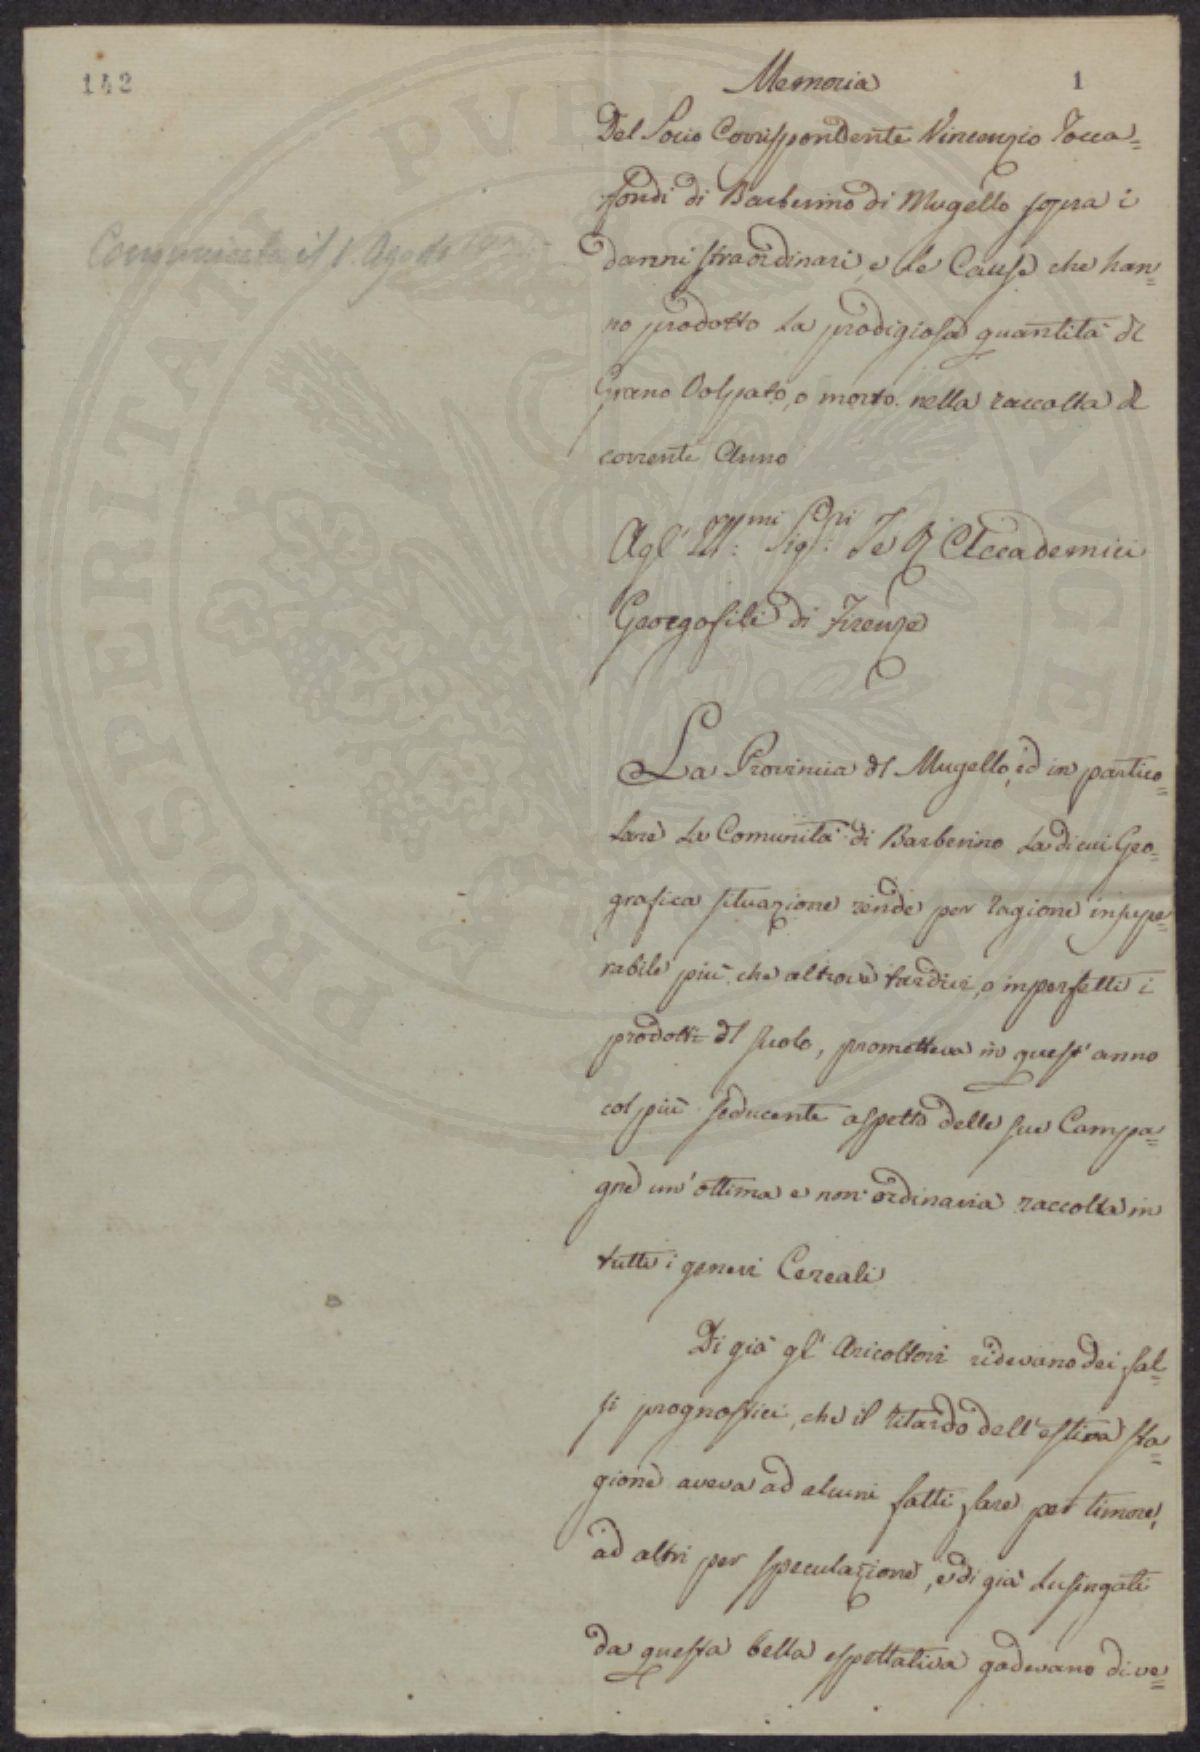 142
Memoria 1
Del Socio Corrispondente Vincenzio Tocca=
fondi di Barberino di Mugello sopra i
danni straordinari, e le Cause che han=
no prodotto la prodigiosa quantità di
Grano Volpato, o morto nella raccolta d
corrente Anno
Comunicata il 1. Agosto
Agl' Ill:mi Sig:ri I e R Accademici
Georgofili di Firenze
La Provincia dl Mugello, ed in partico=
lare la Comunità di Barberino la di cui Geo=
grafica situazione rende per ragione insupe=
rabile più che altrove tardivi, o imperfetti i
prodotti dl suolo, prometteva in quest' anno
col più seducente aspetto delle sue Campa=
gne un' ottima e non ordinaria raccolta in
tutti i generi Cereali
Di già gl' Aricoltori ridevano dei fal=
si prognostici, che il ritardo dell' estiva sta=
gione aveva ad alcuni fatti fare per timore,
ad altri per speculazione, e di già lusingati
da questa bella espettativa godevano di ve=
PROSPERITATI PVBLICAE AVGENDAE